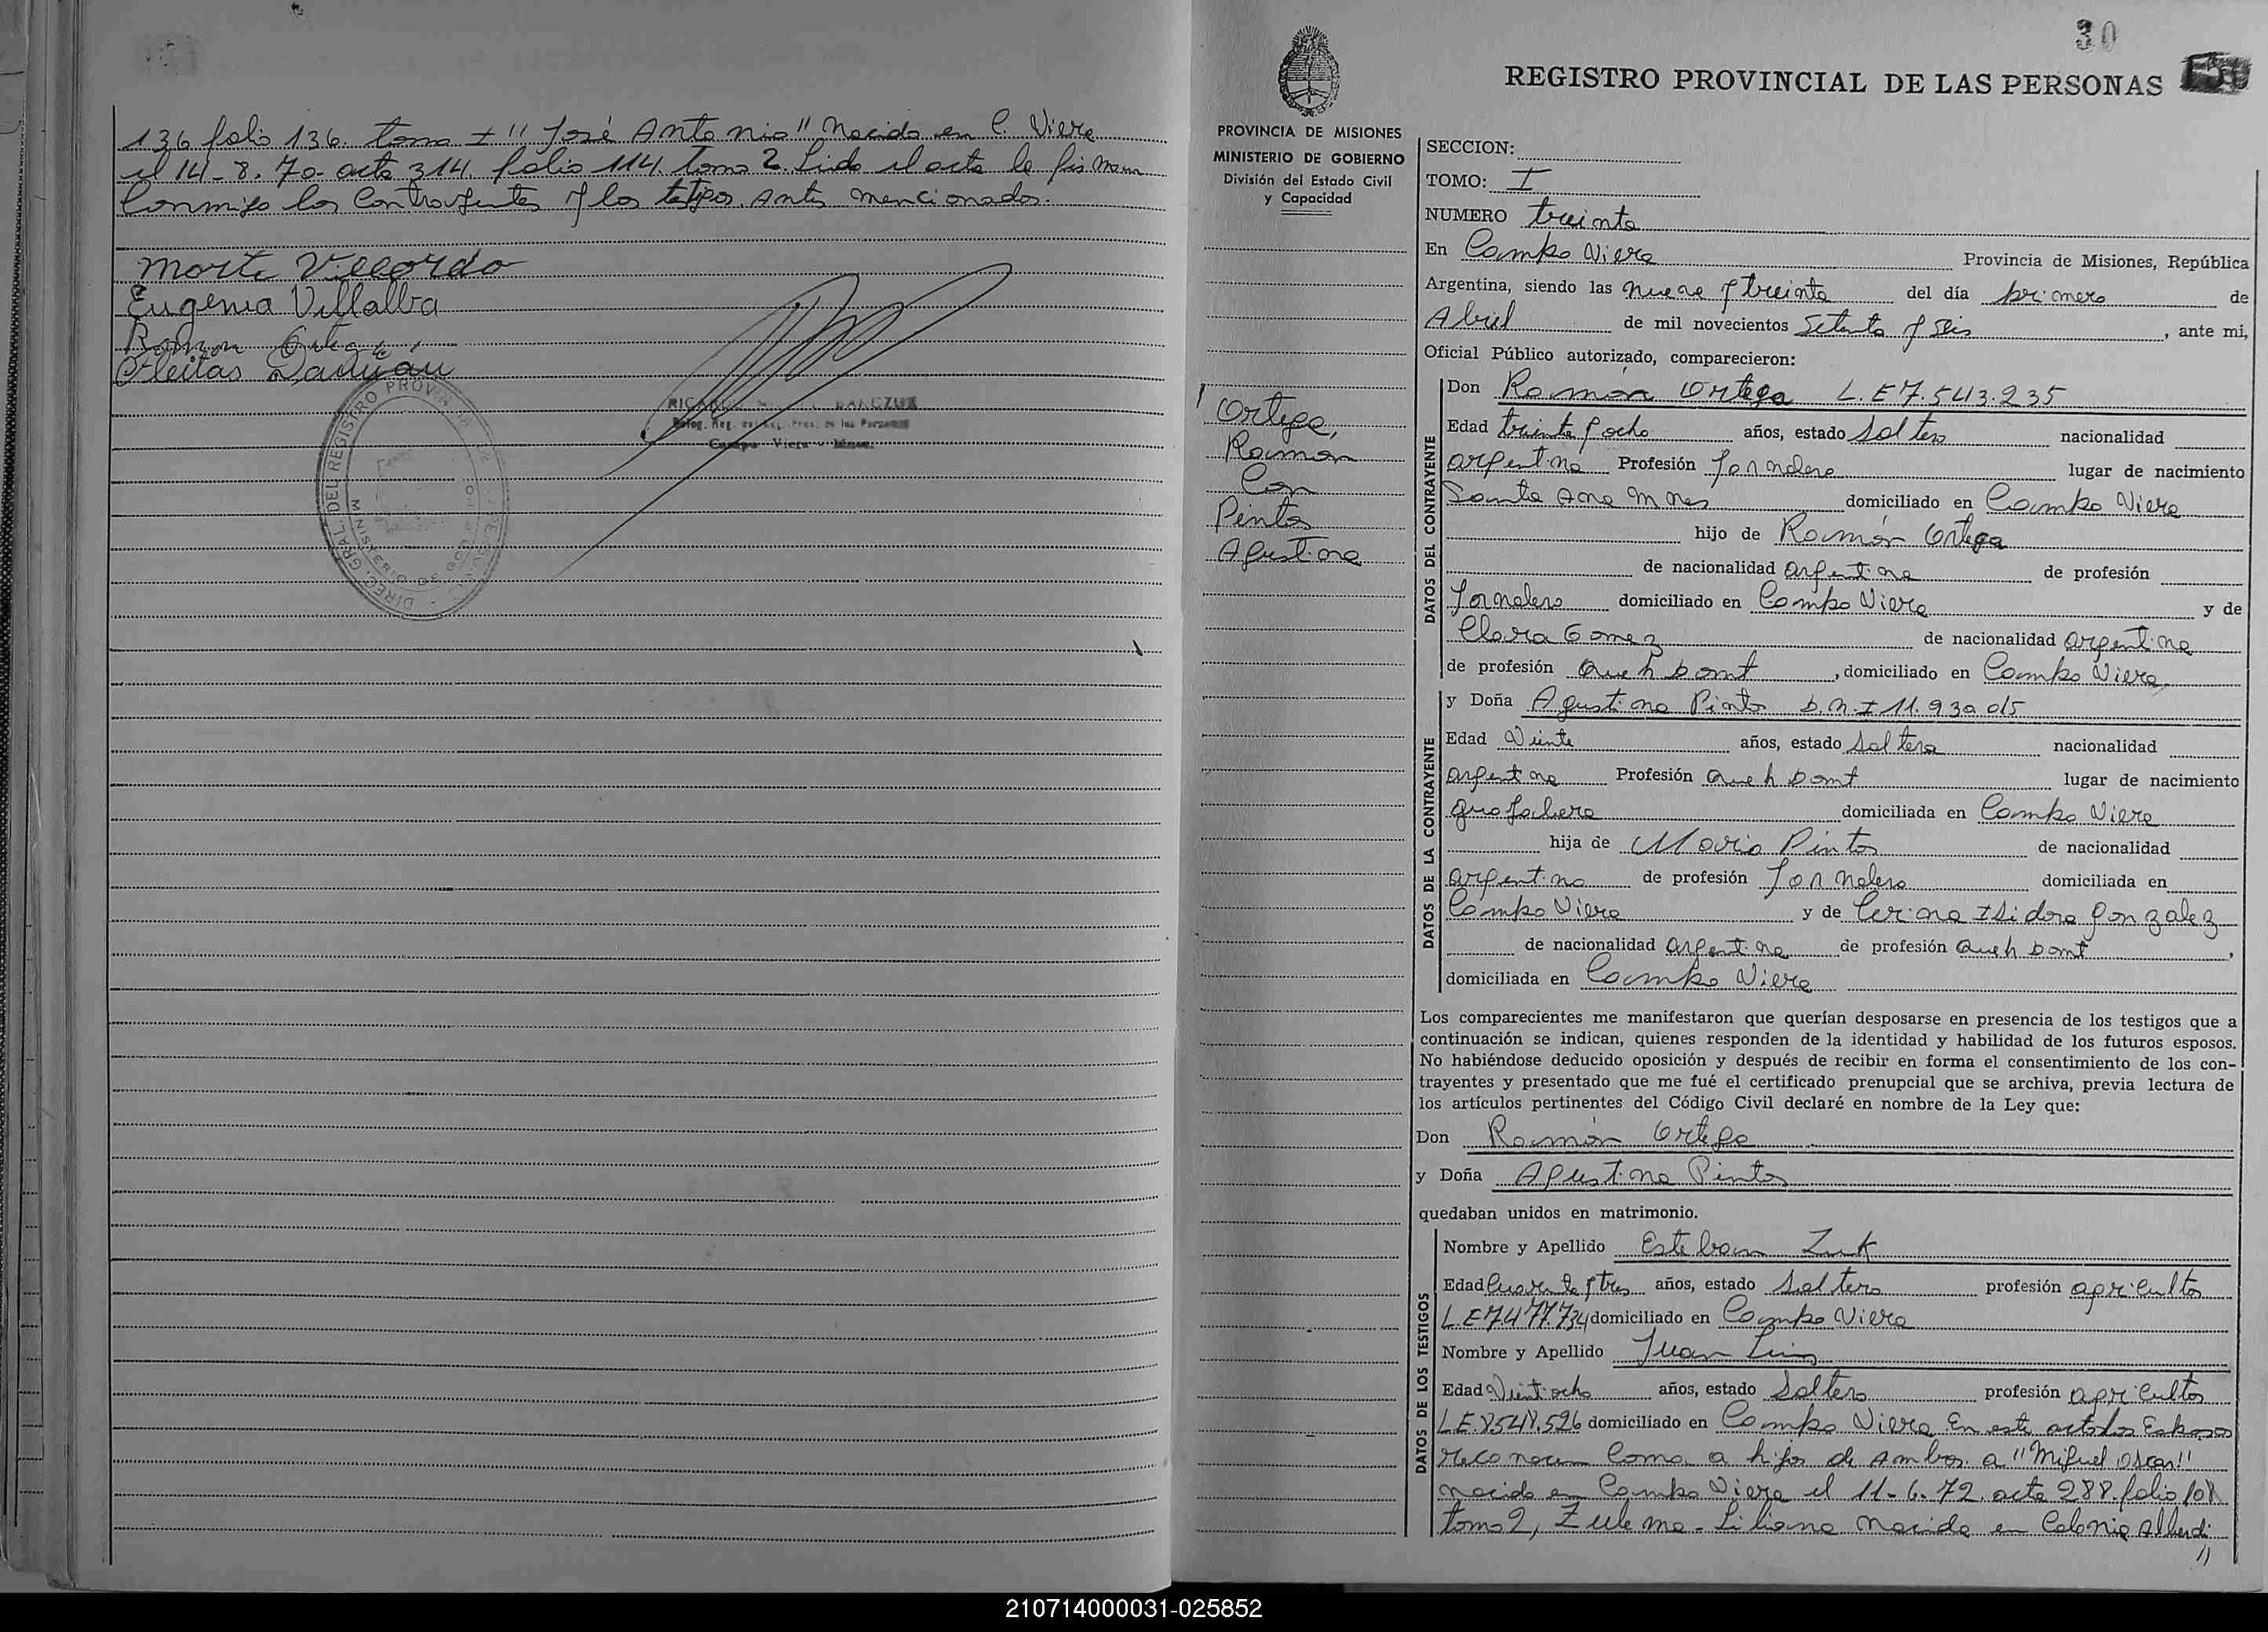 136 folio 136. tomo I "José Antonio" Nacido en C. Viera
el 14-8-70- acta 314 folio 114 tomo 2. Lido el acta la firman
Conmigo los Contrayentes y los testigos Antes mencionados.
Eugenia Villalba
Ramon Ortega
DIREC. GRAL. DEL REGISTRO PROVINCIAL
MINISTERIO DE
Campo Viera - Mnes.
30
REGISTRO PROVINCIAL DE LAS PERSONAS
PROVINCIA DE MISIONES
MINISTERIO DE GOBIERNO
División del Estado Civil
y Capacidad
Ortega,
Ramón
Con
Pinto
Agustina
SECCION:
TOMO: I
NUMERO treinta
En Campo Viera Provincia de Misiones, República
Argentina, siendo las nueve y treinta del día primero de
Abril de mil novecientos Setenta y Seis, ante mi,
Oficial Público autorizado, comparecieron:
DATOS DEL CONTRAYENTE
Don Ramón Ortega L.E 7.543.235
Edad treinta y ocho años, estado Soltero nacionalidad
argentina Profesión Jornalero lugar de nacimiento
Santa Ana Mnes domiciliado en Campo Viera
hijo de Ramón Ortega
de nacionalidad argentina de profesión
Jornalero domiciliado en Campo Viera y de
Clara Gomez de nacionalidad argentina
de profesión Queh Domt, domiciliado en Campo Viera
DATOS DE LA CONTRAYENTE
y Doña Agustina Pinto D.N.I 11.930.015
Edad Veinte años, estado Soltera nacionalidad
argentina Profesión Queh Domt lugar de nacimiento
domiciliada en Campo Viera
hija de Mario Pinto de nacionalidad
argentina de profesión Jornalero domiciliada en
Campo Viera y de Isidora Gonzalez
de nacionalidad argentina de profesión Queh Domt,
domiciliada en Campo Viera
Los comparecientes me manifestaron que querían desposarse en presencia de los testigos que a
continuación se indican, quienes responden de la identidad y habilidad de los futuros esposos.
No habiéndose deducido oposición y después de recibir en forma el consentimiento de los con-
trayentes y presentado que me fué el certificado prenupcial que se archiva, previa lectura de
los artículos pertinentes del Código Civil declaré en nombre de la Ley que:
Don Ramón Ortega
y Doña Agustina Pinto
quedaban unidos en matrimonio.
DATOS DE LOS TESTIGOS
Nombre y Apellido Esteban Zuk
Edad Cuarenta y tres años, estado Soltero profesión agricultor
L.E 7.477.734 domiciliado en Campo Viera
Nombre y Apellido Juan
Edad Veintiocho años, estado Soltero profesión agricultor
L.E. 8.548.526 domiciliado en Campo Viera En este acto los Esposos
reconocen Como a hijos de Ambos a "Miguel Oscar"
nacido en Campo Viera el 11-6-72. acta 288 folio 108
tomo 2, Zulema-Liliana nacida en Colonia Alberdi
//
210714000031-025852